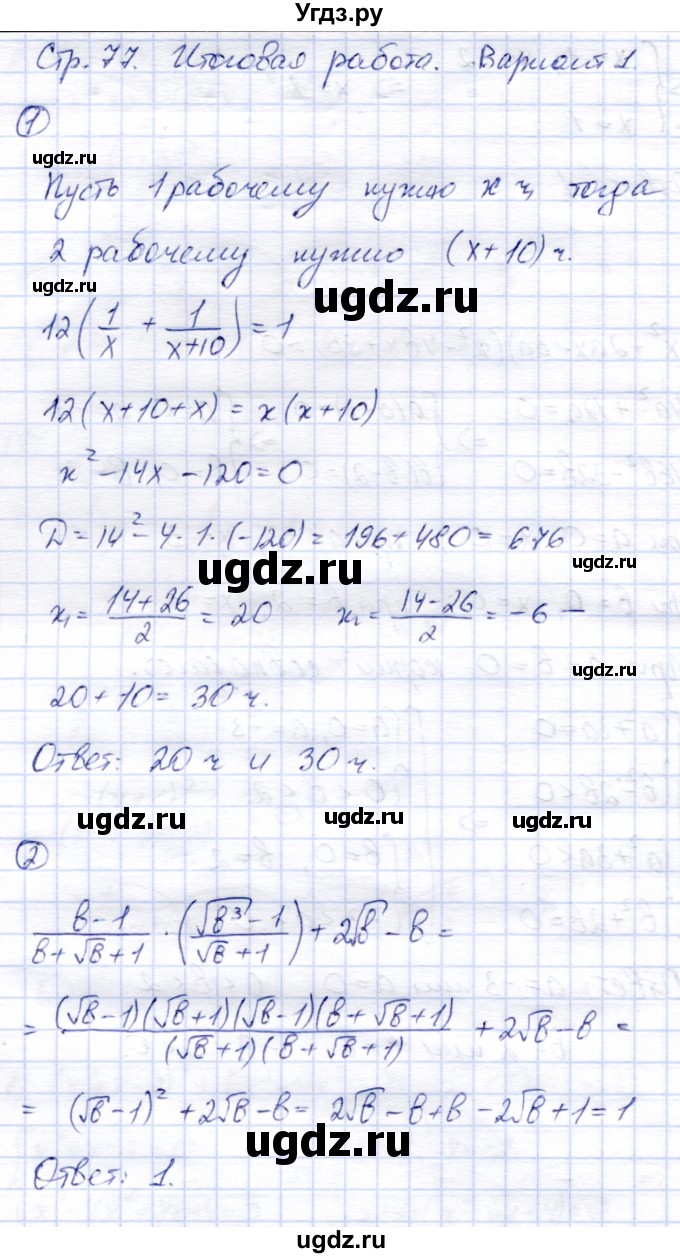 Угдз.ру
Стр. 77. Итоговая работа. Вариант 1.
①
ugdz.ru
Пусть 1 рабочему нужно x ч, тогда
2 рабочему нужно (x+10) ч.
ugdz.ru
ugdz.ru
12(1/x + 1/(x+10)) = 1
12(x+10+x) = x(x+10)
x² - 14x - 120 = 0
ugdz.ru
D = 14² - 4·1·(-120) = 196 + 480 = 676
ugdz.ru
ugdz.ru
x₁ = (14+26)/2 = 20    x₂ = (14-26)/2 = -6 –
ugdz.ru
ugdz.ru
20 + 10 = 30 ч.
Ответ: 20 ч и 30 ч.
ugdz.ru
ugdz.ru
ugdz.ru
②
(b-1)/(b+√b+1) · ((√b³-1)/(√b+1)) + 2√b - b =
= ((√b-1)(√b+1)(√b-1)(b+√b+1))/((√b+1)(b+√b+1)) + 2√b - b =
= (√b-1)² + 2√b - b = 2√b - b + b - 2√b + 1 = 1
ugdz.ru
Ответ: 1.
ugdz.ru
ugdz.ru